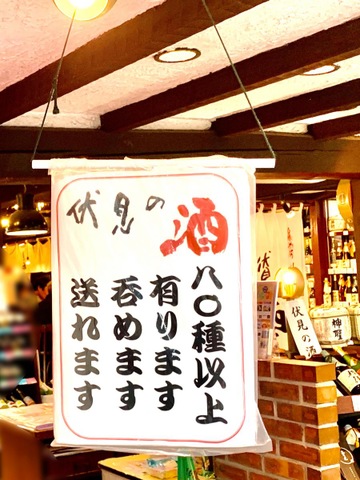 伏見の酒
八〇種以上
有ります
呑めます
送れます
伏見の酒
神聖